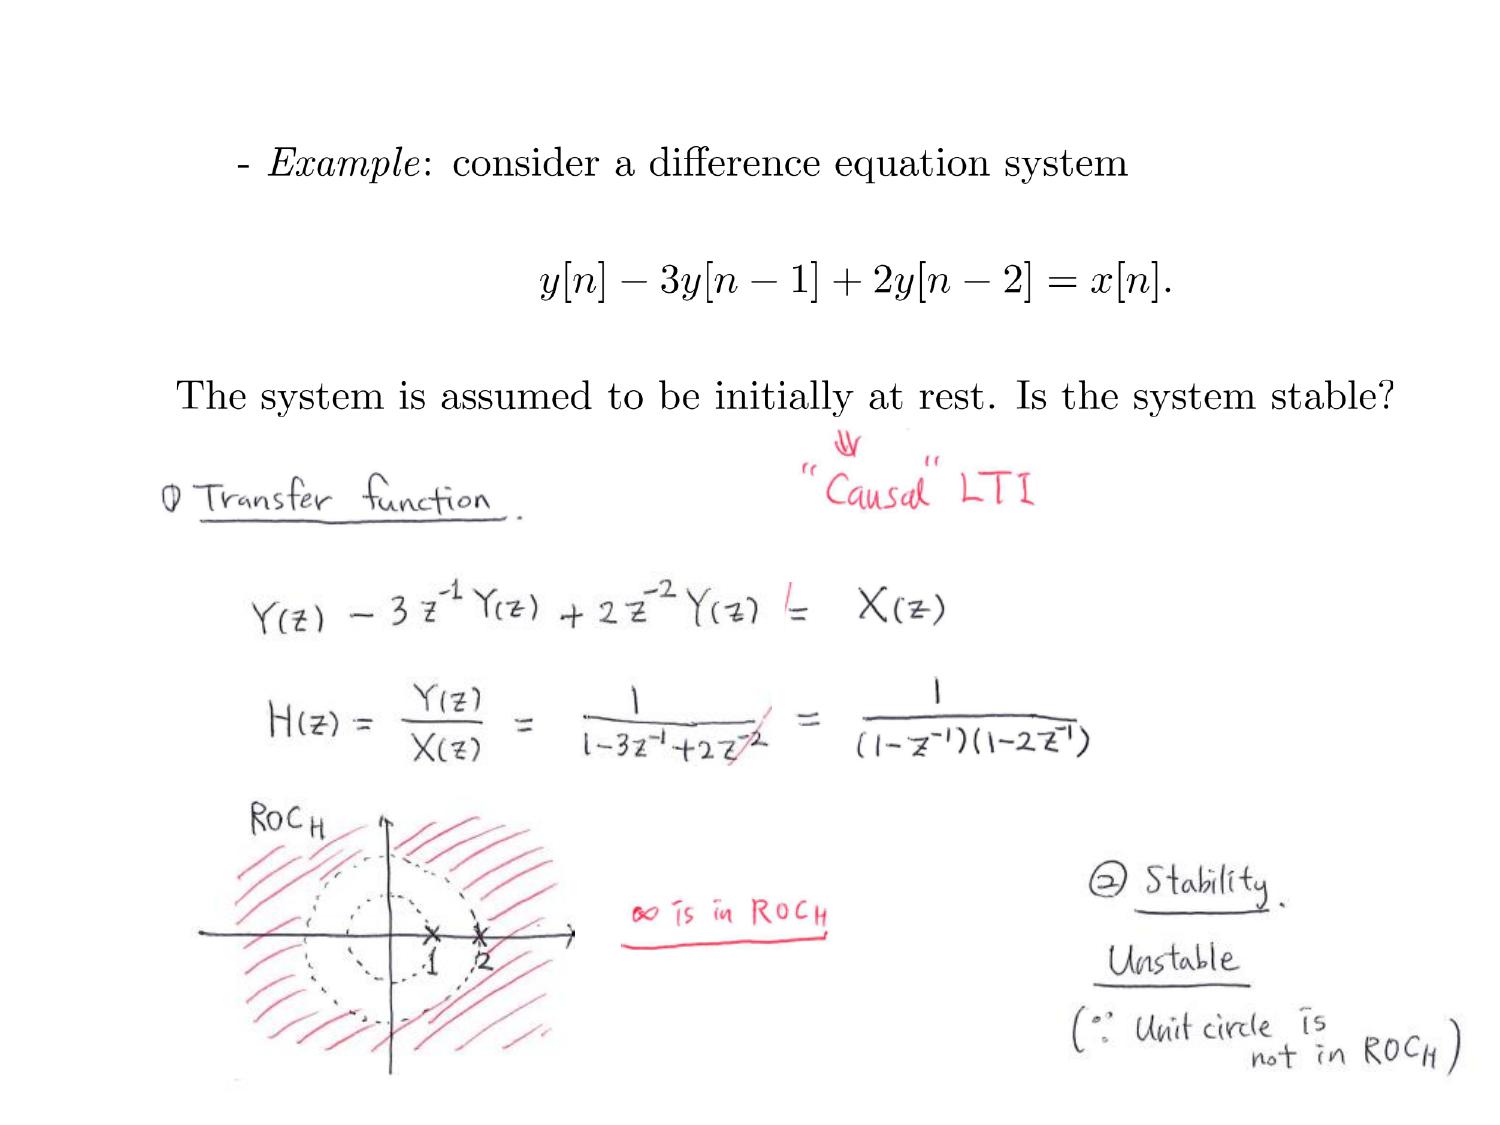 - Example: consider a difference equation system
y[n] − 3y[n − 1] + 2y[n − 2] = x[n].
The system is assumed to be initially at rest. Is the system stable?
⇓
"Causal" LTI
① Transfer function.
Y(z) − 3z⁻¹Y(z) + 2z⁻²Y(z) = X(z)
H(z) = Y(z)/X(z) = 1/(1−3z⁻¹+2z⁻²) = 1/((1−z⁻¹)(1−2z⁻¹))
ROC_H
1 2
∞ is in ROC_H
② Stability.
Unstable
(∵ Unit circle is
not in ROC_H)